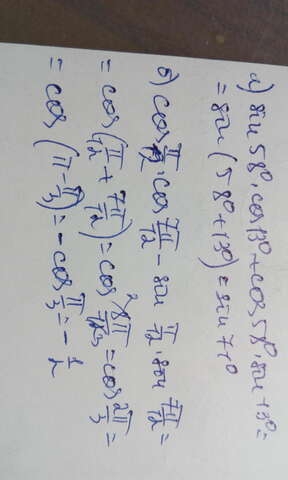 а) sin 58° · cos 13° + cos 58° · sin 13° =
= sin (58° + 13°) = sin 71°
б) cos π/12 · cos 7π/12 − sin π/12 · sin 7π/12 =
= cos (π/12 + 7π/12) = cos 8π/12 = cos 2π/3 =
= cos (π − π/3) = − cos π/3 = − 1/2